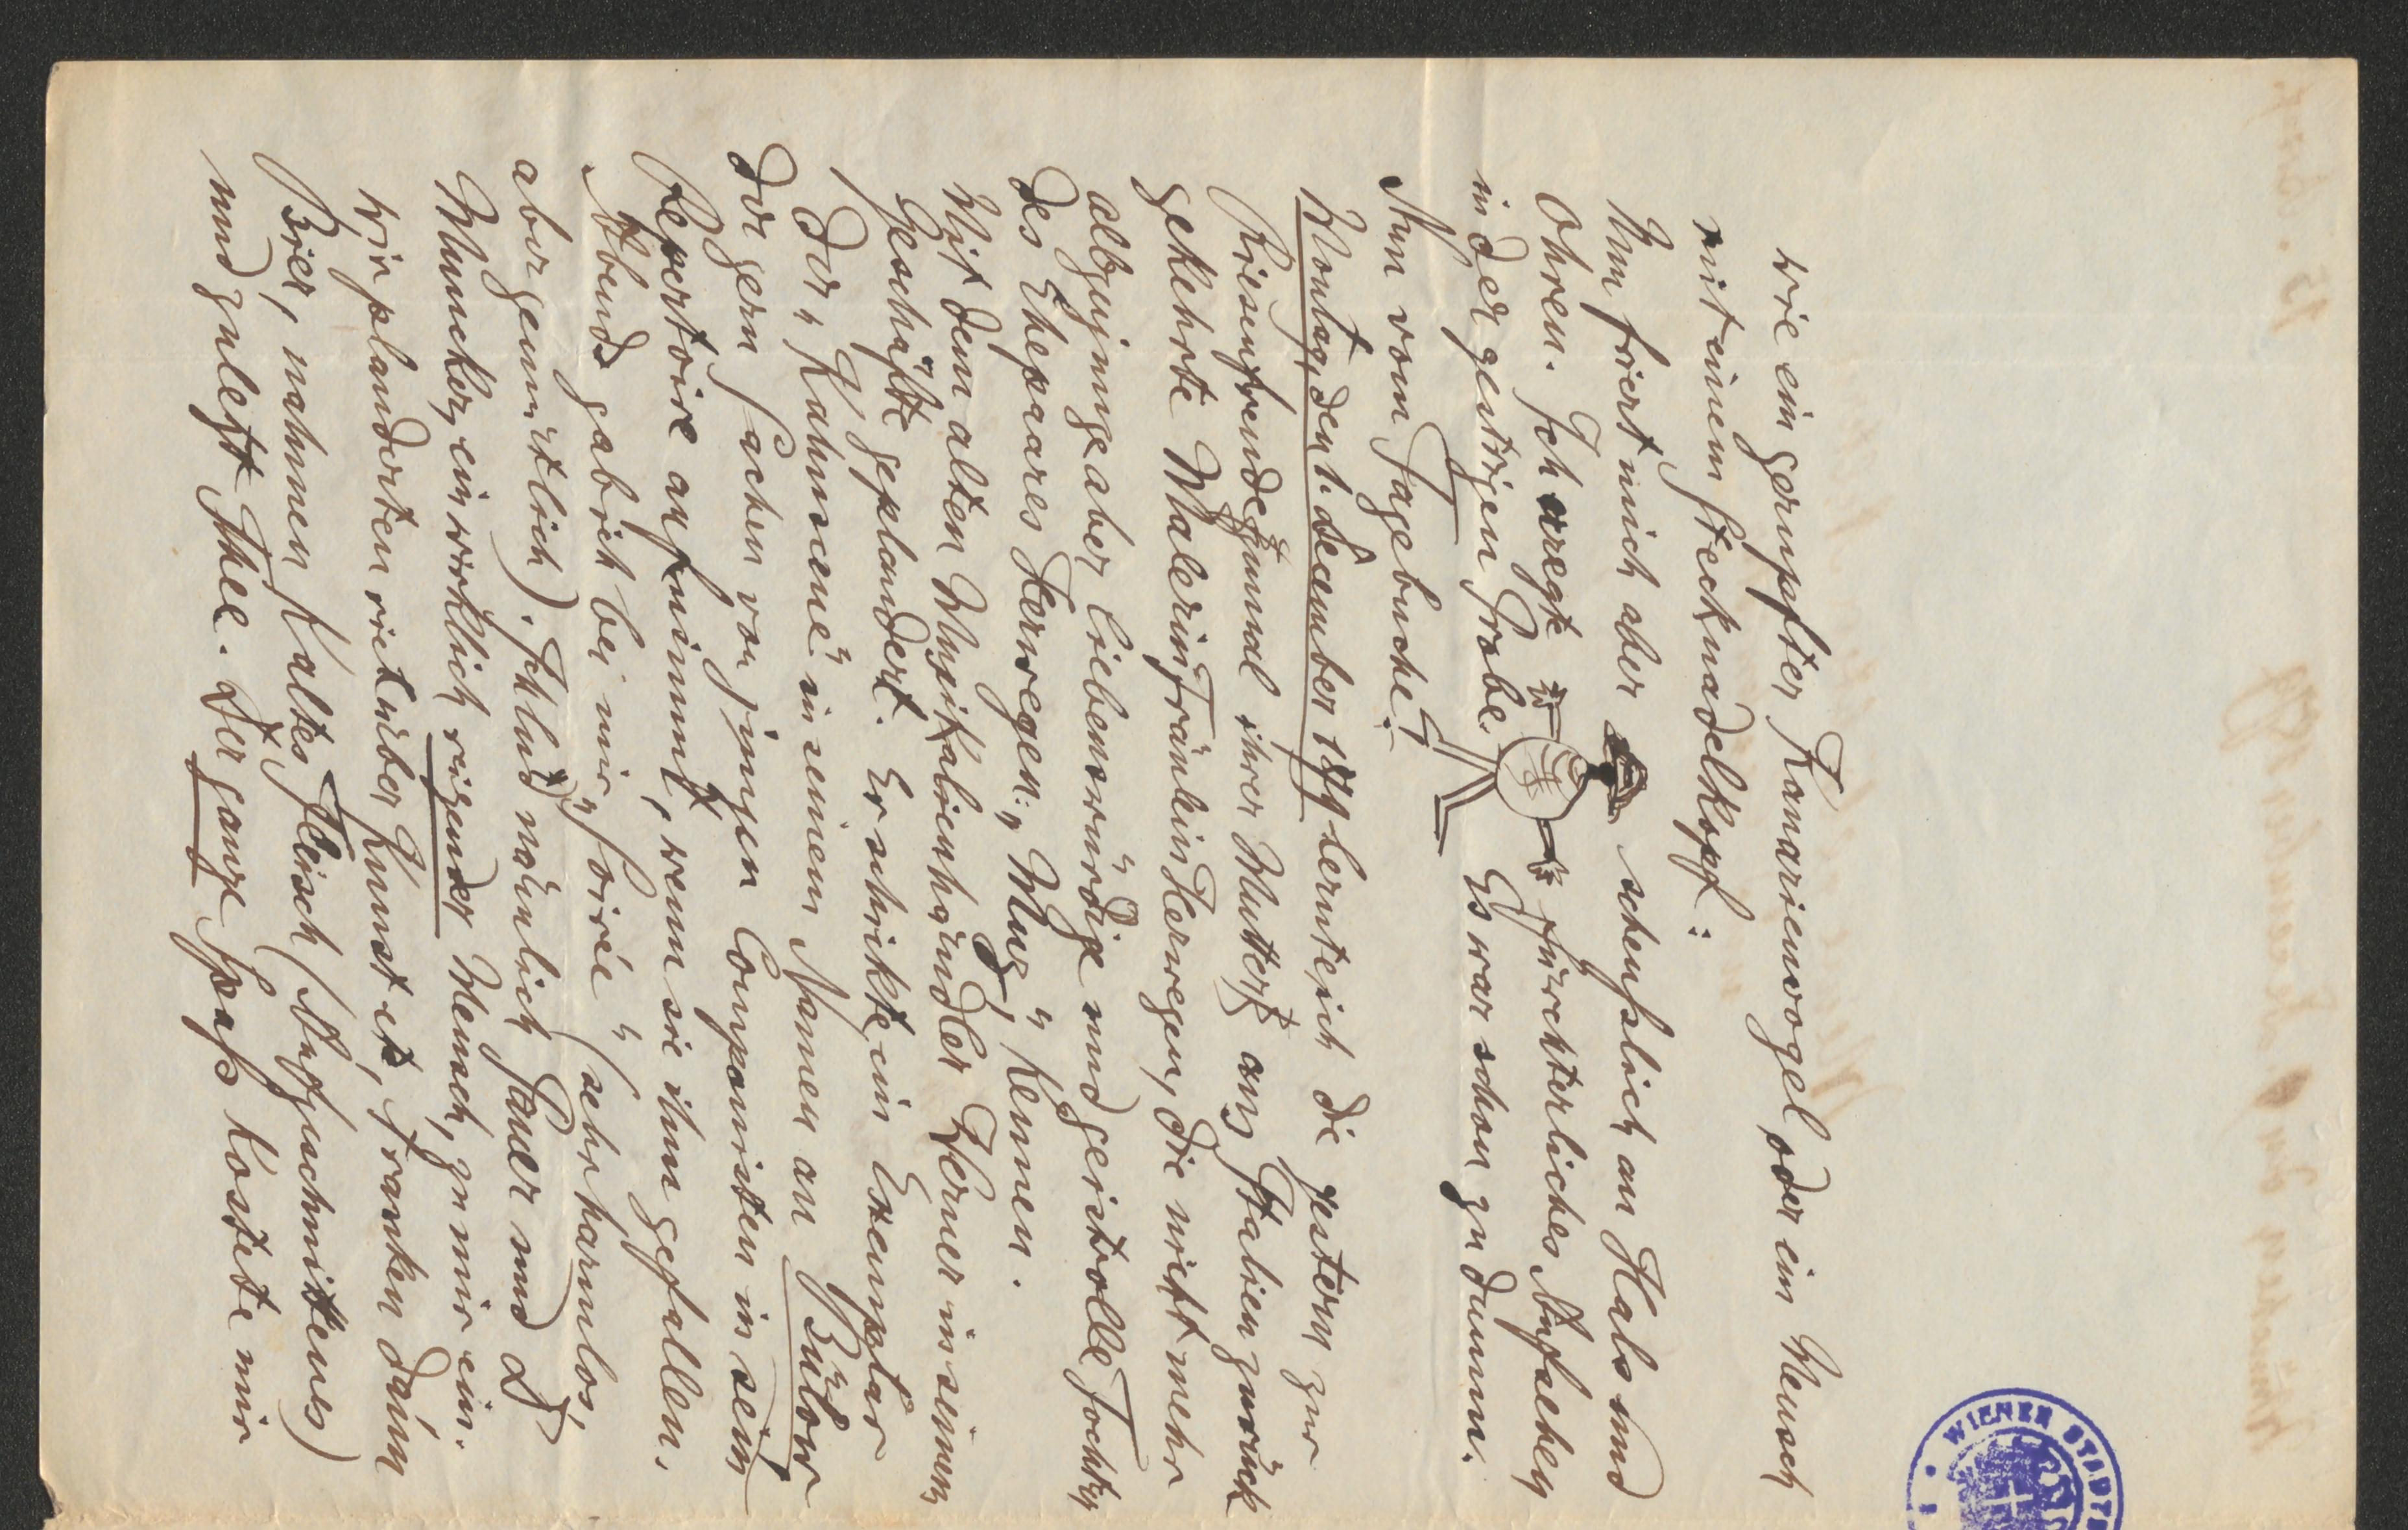 wie ein gerupfter Kanarienvogel, oder ein Mensch
mit einem Stecknadelkopf:
Nun friert mich aber scheußlich an Hals und
Ohren. Ich erregte fürchterliches Aufsehen
in der gestrigen Probe. Es war schon zu dumm.
Nun vom Tagebuche!
Montag, den 1. December 1879 lernte ich die gestern zur
Riesenfreude ihrer Mutter aus Italien zurück
gekehrte Malerin Fräulein Herwegen, die nicht mehr
allzujunge aber liebenswürdige und geistvolle Tochter
des Ehepaares Herwegen: „Mug“, kennen.
Mit dem alten Musikalienhändler Werner in seinem
Geschäfte geplaudert. Er schickte ein Exemplar
der „Kahnscene“ in seinem Namen an Bülow
der gern Sachen von jungen Componisten in sein
Repertoire aufnimmt, wenn sie ihm gefallen.
Abends gab ich bei mir „Soirée“ (sehr harmlos,
aber gemütlich). Ich lud nämlich Sauer und Dr.
Muncker, ein wirklich reizender Mensch, zu mir ein.
Wir plauderten viel über Kunst etc., tranken dann
Bier, nahmen kaltes Fleisch (Aufgeschnittenes)
und zuletzt Thee. Der ganze Spaß kostete mir
WIENER STADT